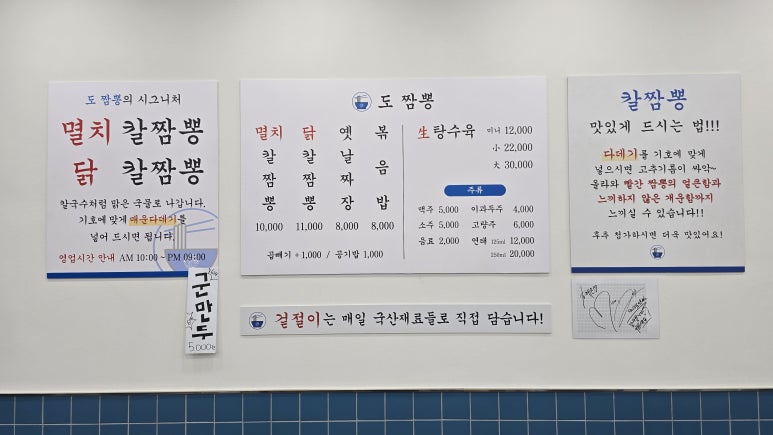 도 짬뽕의 시그니처
멸치 칼짬뽕
닭 칼짬뽕
칼국수처럼 맑은 국물로 나갑니다.
기호에 맞게 매운다데기를
넣어 드시면 됩니다.
영업시간 안내 AM 10:00 ~ PM 09:00
군만두
5,000원
도 짬뽕
멸치칼짬뽕 10,000
닭칼짬뽕 11,000
옛날짜장 8,000
볶음밥 8,000
곱빼기 +1,000 / 공기밥 1,000
生 탕수육 미니 12,000
小 22,000
大 30,000
주류
맥주 5,000 이과두주 4,000
소주 5,000 고량주 6,000
음료 2,000 연태 125ml 12,000
250ml 20,000
겉절이는 매일 국산재료들로 직접 담습니다!
칼짬뽕
맛있게 드시는 법!!!
다데기를 기호에 맞게
넣으시면 고추기름이 싸악~
올라와 빨간 짬뽕의 얼큰함과
느끼하지 않은 개운함까지
느끼실 수 있습니다!!
후추 첨가하시면 더욱 맛있어요!